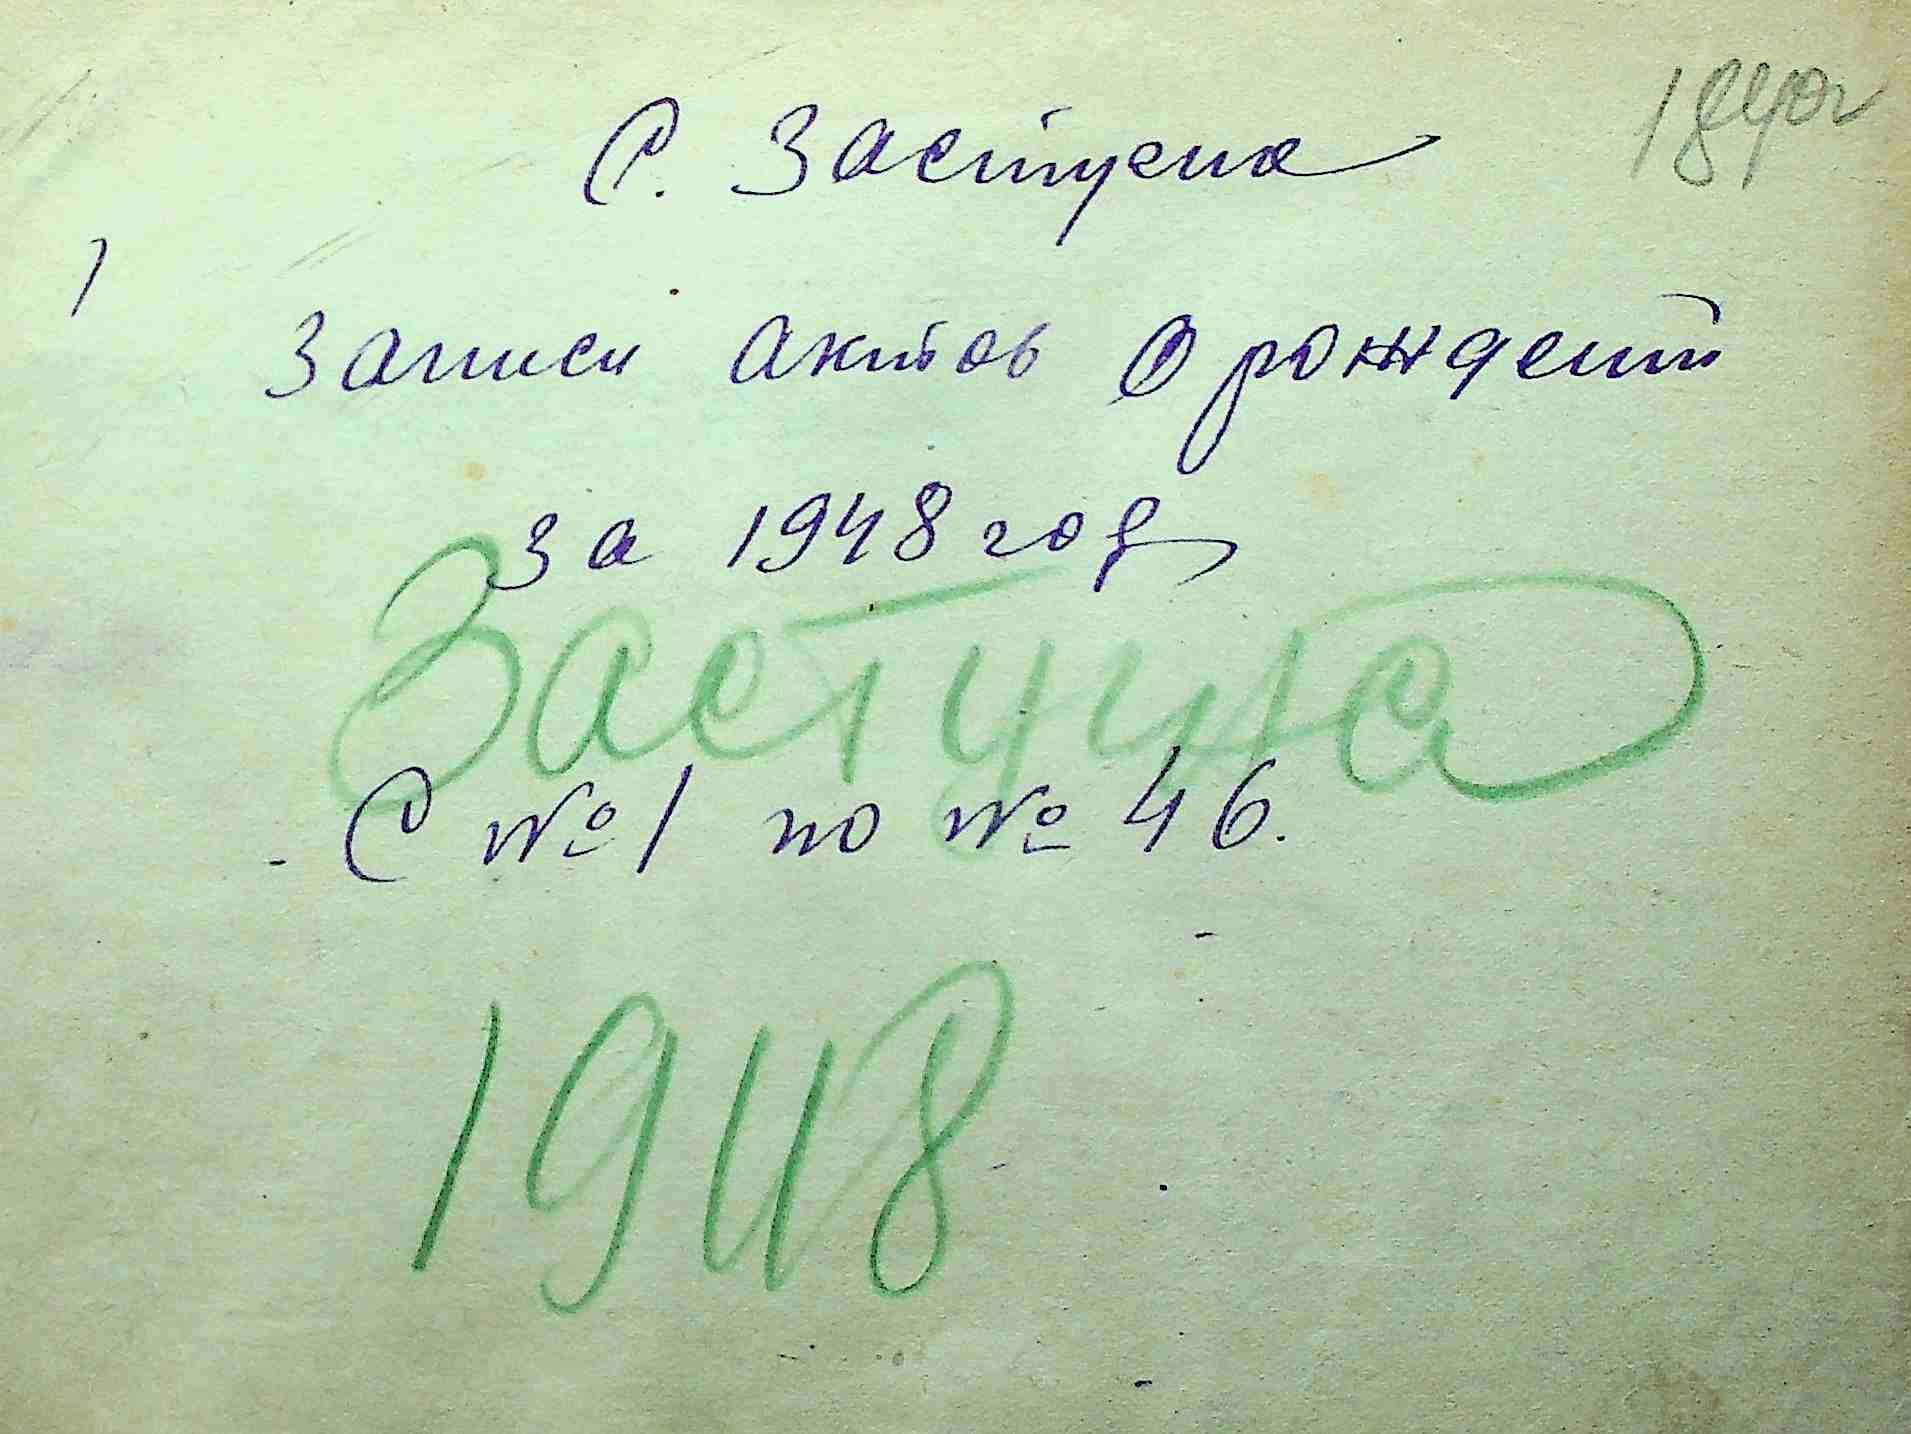 С. Застугна
1
Записи актов о рождении
за 1948 год
Застугна
С №1 по № 46.
1948